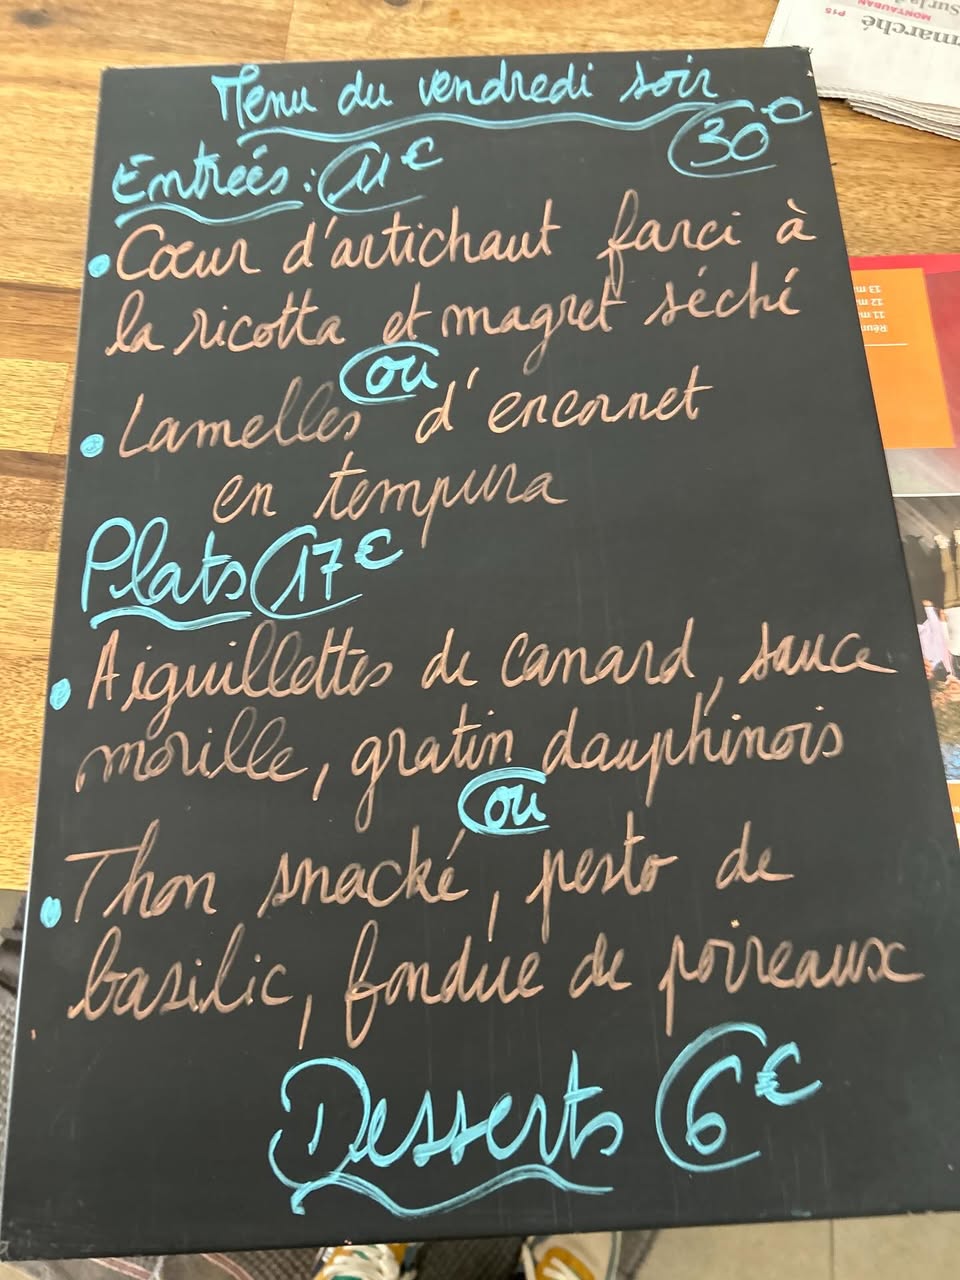 Menu du vendredi soir
30€
Entrées : 11€
• Cœur d'artichaut farci à
la ricotta et magret séché
ou
• Lamelles d'encornet
en tempura
Plats 17€
• Aiguillettes de canard, sauce
morille, gratin dauphinois
ou
• Thon snacké, pesto de
basilic, fondue de poireaux
Desserts 6€
marché
P15
MONTAUBAN
13 m
12 m
11 m
Réun